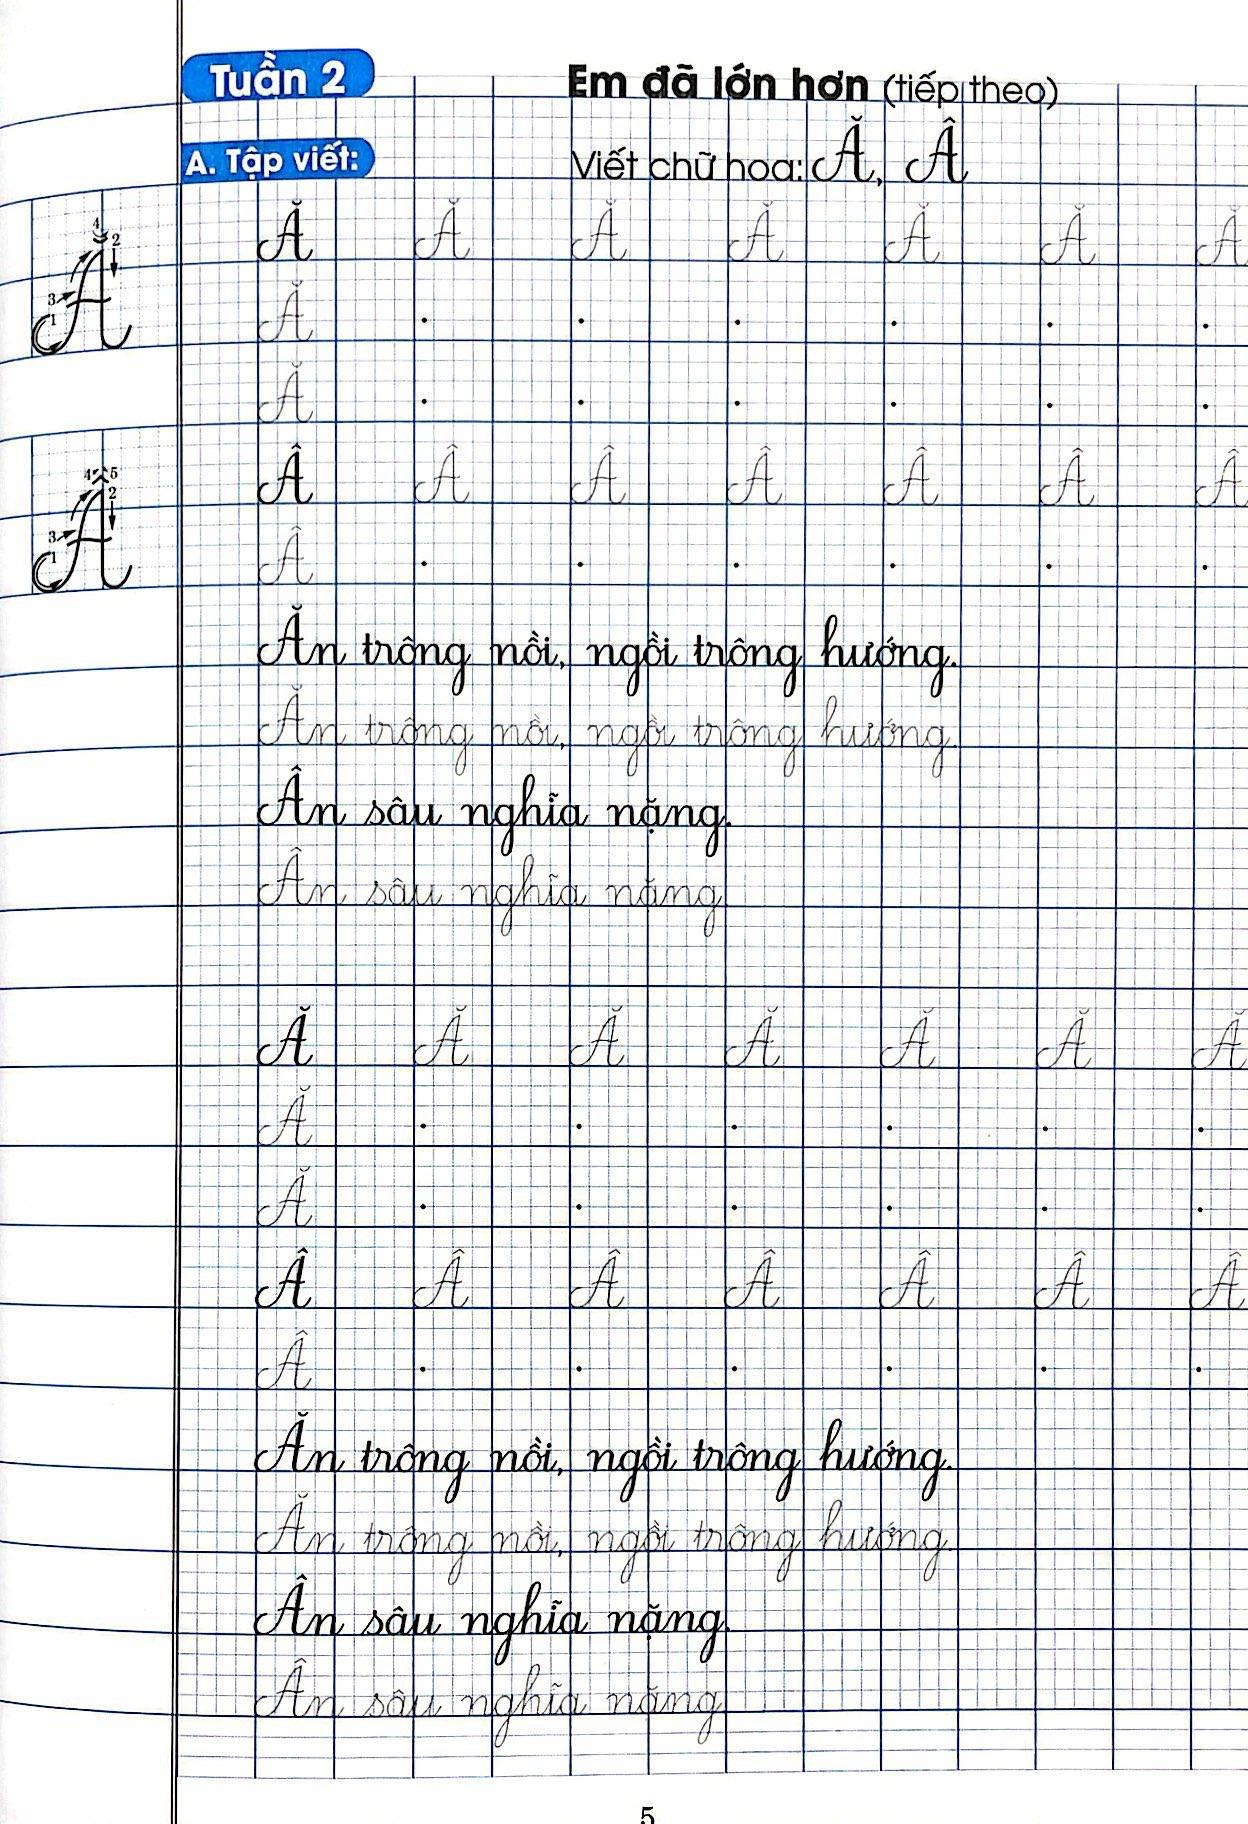 Tuần 2
Em đã lớn hơn (tiếp theo)
A. Tập viết:
Viết chữ hoa: Ă, Â
4 2 3 1
Ă Ă Ă Ă Ă Ă Ă
Ă . . . . . .
Ă . . . . . .
4 5 2 3 1
Â Â Â Â Â Â Â
Â . . . . . .
Ăn trông nồi, ngồi trông hướng.
Ăn trông nồi, ngồi trông hướng.
Ân sâu nghĩa nặng.
Ân sâu nghĩa nặng.
Ă Ă Ă Ă Ă Ă Ă
Ă . . . . . .
Ă . . . . . .
Â Â Â Â Â Â Â
Â . . . . . .
Ăn trông nồi, ngồi trông hướng.
Ăn trông nồi, ngồi trông hướng.
Ân sâu nghĩa nặng.
Ân sâu nghĩa nặng.
5